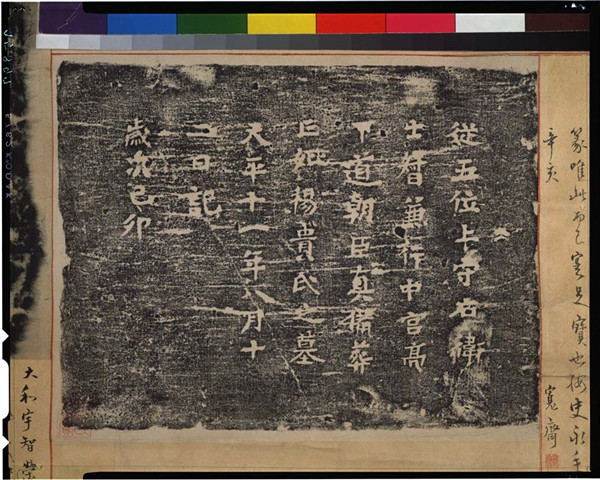 篆唯此而已寔是寶也按史永手
辛亥
寛齋
從五位上守右衛
士督兼行中宮亮
下道朝臣真備葬
亡妣楊貴氏之墓
天平十一年八月十
二日記
歲次己卯
大和宇智榮